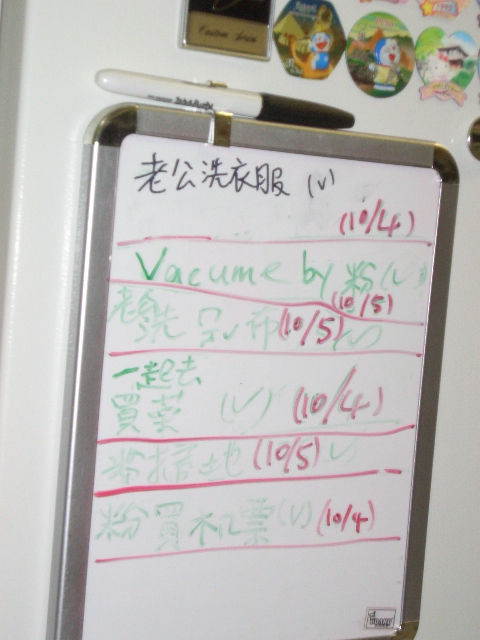 Custom Series
老公洗衣服 (v)
(10/4)
Vacume by 粉 (v)
(10/5)
洗 布 (10/5) (v)
一起去
買菜 (v) (10/4)
粉 地 (10/5) v
粉買机票 (v) (10/4)